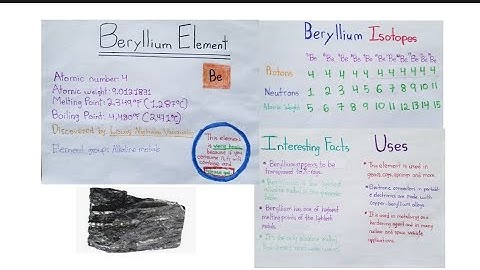 Beryllium Element
Be
Atomic number: 4
Atomic weight: 9.0121831
Melting Point: 2,349°F (1,287°C)
Boiling Point: 4,480°F (2,471°C)
Discovered by: Louis Nicholas
Element group: Alkaline metals
This element
is very
because if you
consume it, it will
combine and
Beryllium Isotopes
Be Be Be Be Be Be Be Be Be Be Be
Protons 4 4 4 4 4 4 4 4 4 4 4
Neutrons 1 2 3 4 5 6 7 8 9 10 11
Atomic Weight 5 6 7 8 9 10 11 12 13 14 15
Interesting Facts
Beryllium appears to be
transparent to X-rays.
Beryllium has one of highest
melting points of the lightest
metals.
It's the only
Uses
This element is used in
gears, cogs, springs and more.
Electronic connectors in portable
electronics are made with
copper-beryllium alloys.
It is used in metallurgy as a
hardening agent and in many
nuclear and space vehicle
applications.